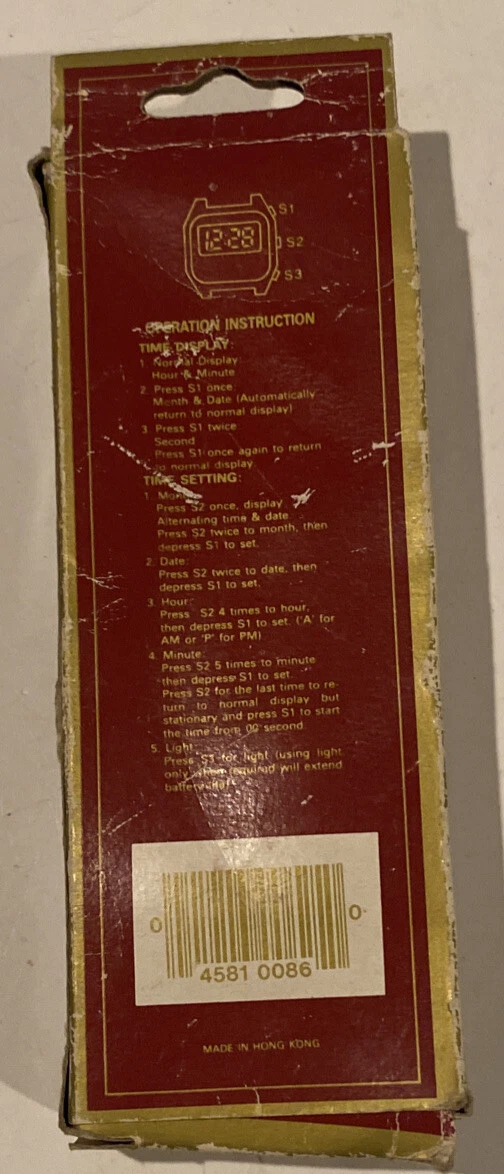 S1
12:28
S2
S3
OPERATION INSTRUCTION
TIME DISPLAY:
1. Normal Display:
Hour & Minute
2. Press S1 once:
Month & Date (Automatically
return to normal display)
3. Press S1 twice
Second
Press S1 once again to return
to normal display.
TIME SETTING:
1.
Press S2 once, display
Alternating time & date.
Press S2 twice to month, then
depress S1 to set.
2. Date:
Press S2 twice to date, then
depress S1 to set.
3. Hour:
Press S2 4 times to hour,
then depress S1 to set. ('A' for
AM or 'P' for PM)
4. Minute:
Press S2 5 times to minute
then depress S1 to set.
Press S2 for the last time to re-
turn to normal display but
stationary and press S1 to start
the time from 00 second.
5. Light:
Press S3 for light (using light
only when required will extend
battery
0
0
4581 0086
MADE IN HONG KONG